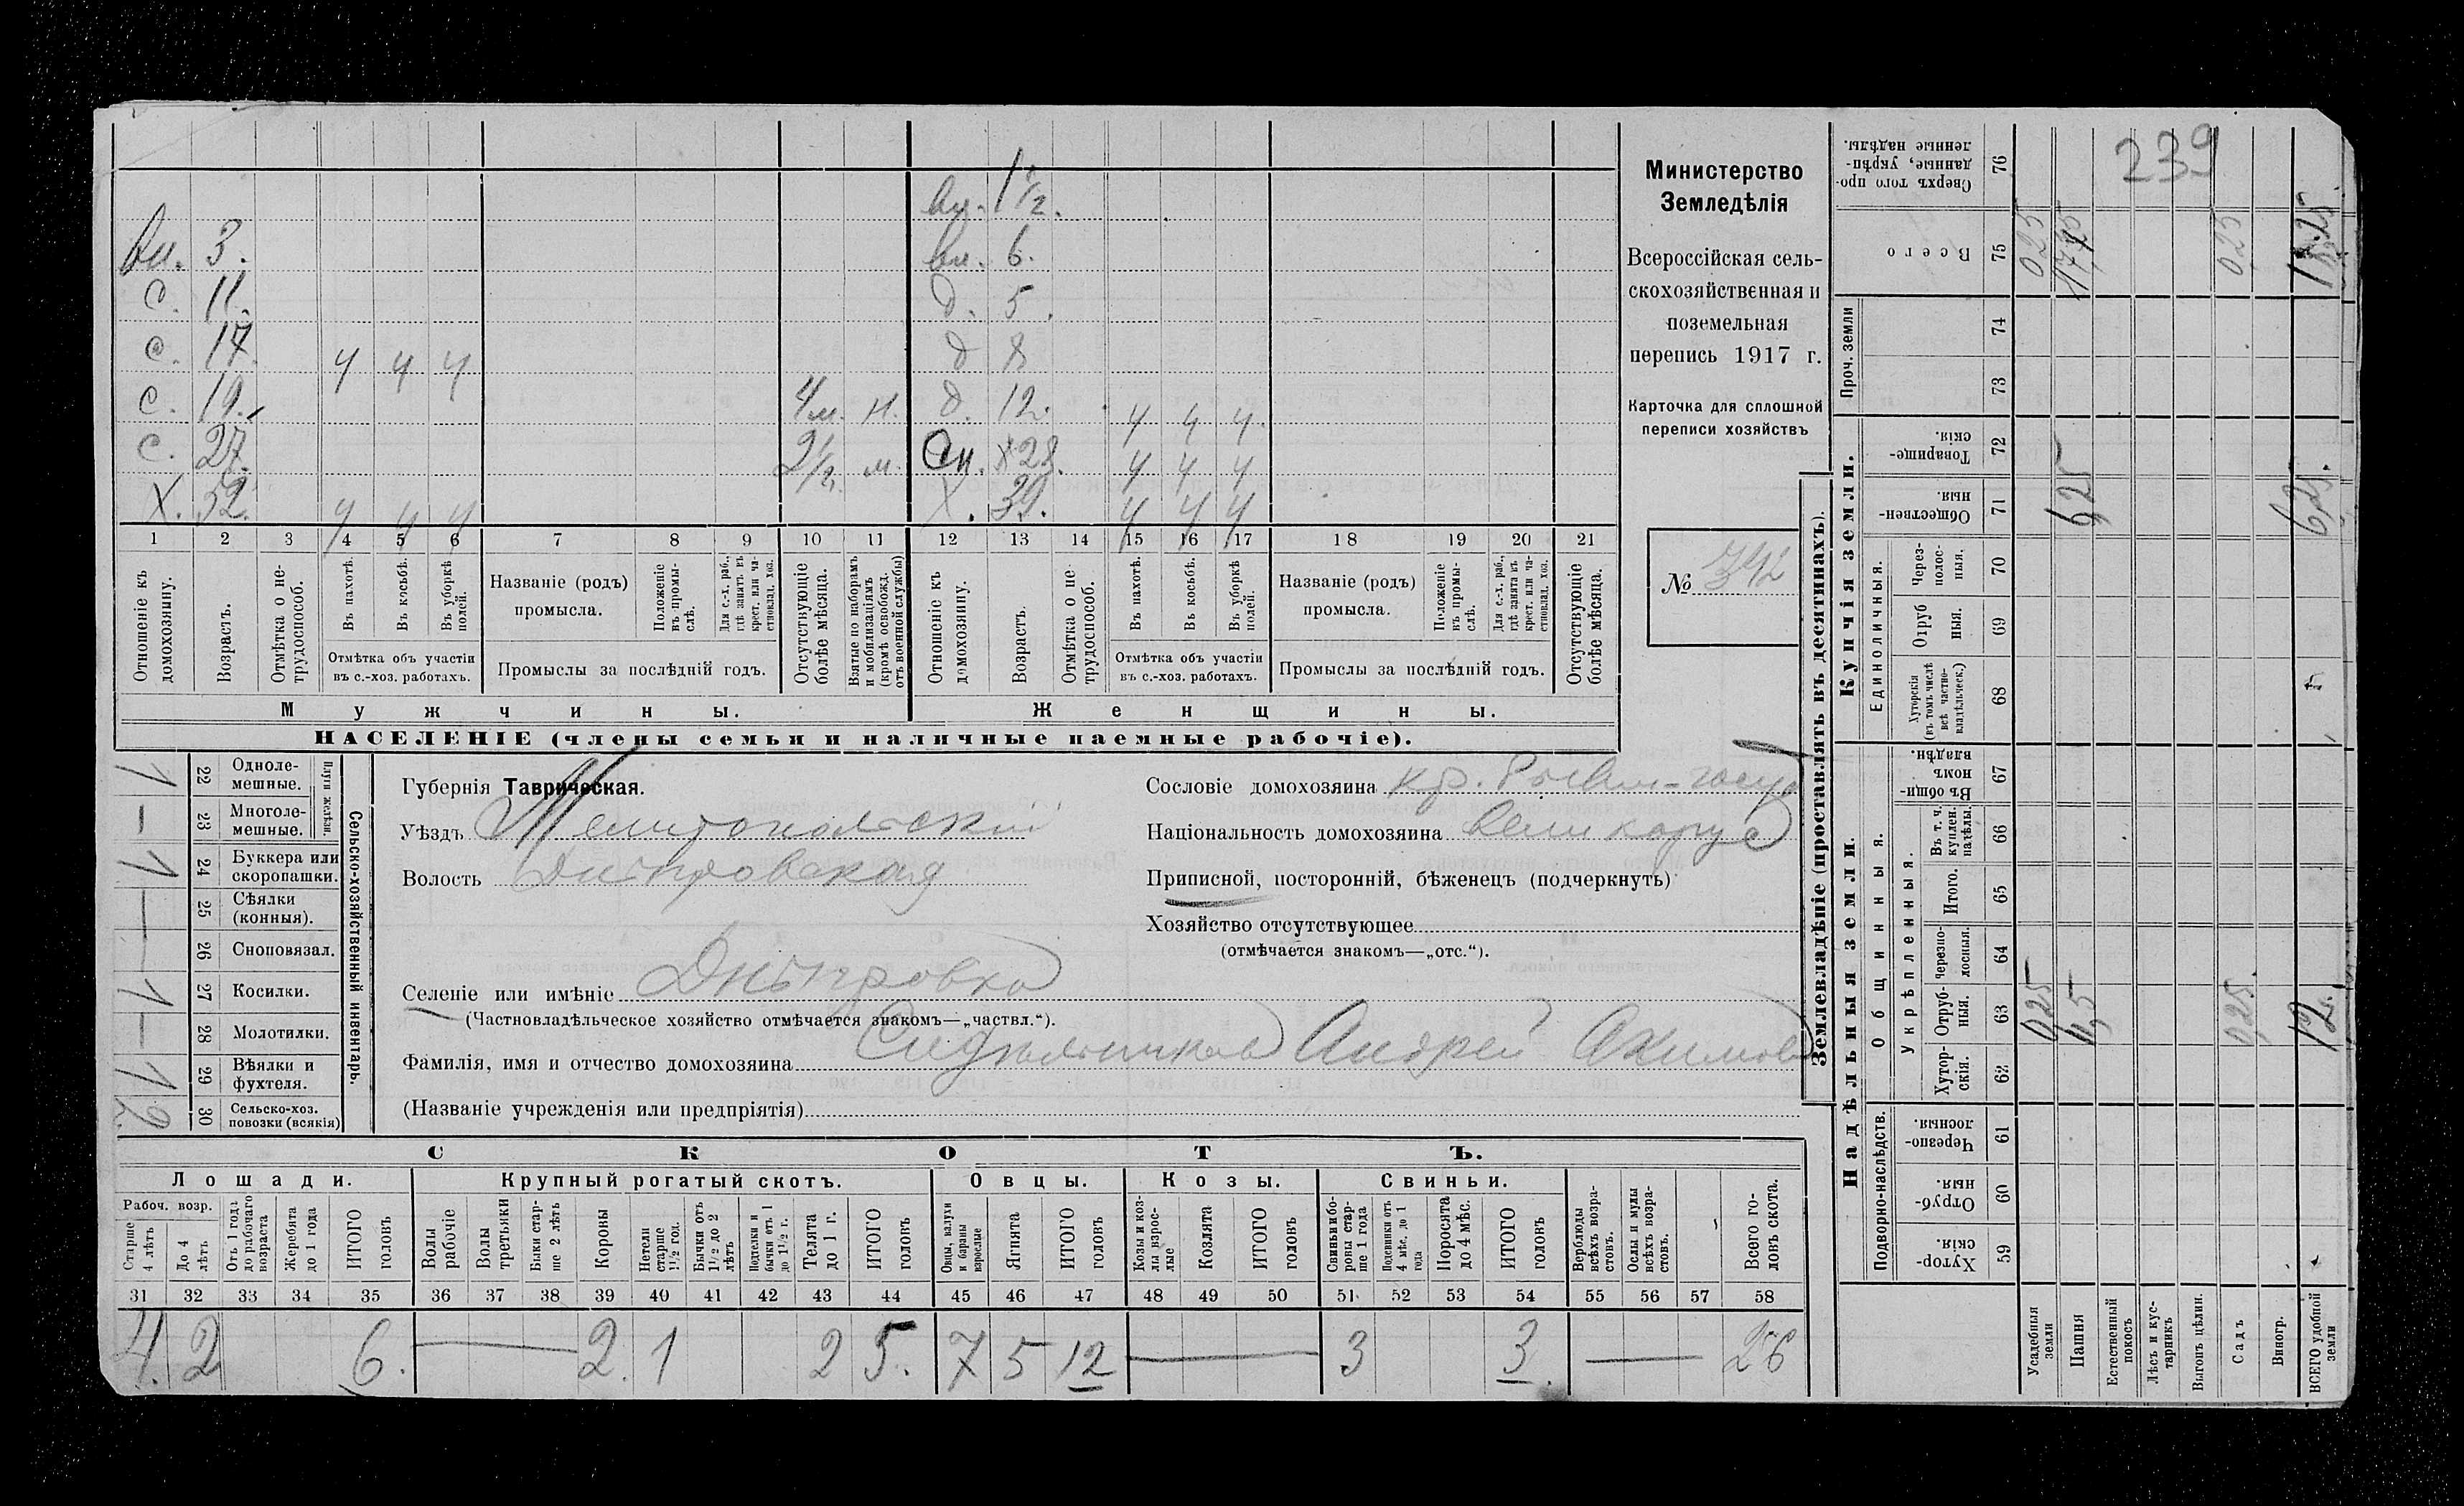 вн. 1 1/2.
вн. 3. вн. 6.
с. 11. д. 5.
с. 17. ч ч ч д 8
с. 19. 4 м. н. д. 12. ч ч ч
с. 27. 2 1/2 м. сн. 28. ч ч ч
Х. 52. ч ч ч Х. 39. ч ч ч
1 2 3 4 5 6 7 8 9 10 11 12 13 14 15 16 17 18 19 20 21
Отношеніе къ домохозяину.
Возрастъ.
Отмѣтка о нетрудоспособ.
Въ пахотѣ.
Въ косьбѣ.
Въ уборкѣ полей.
Отмѣтка объ участіи въ с.-хоз. работахъ.
Названіе (родъ) промысла.
Положеніе въ промыслѣ.
Для с.-х. раб., гдѣ занятъ въ крест. или частновлад. хоз.
Промыслы за послѣдній годъ.
Отсутствующіе болѣе мѣсяца.
Взятые по наборамъ и мобилизаціямъ (кромѣ освобожд. отъ военной службы)
Отношеніе къ домохозяину.
Возрастъ.
Отмѣтка о нетрудоспособ.
Въ пахотѣ.
Въ косьбѣ.
Въ уборкѣ полей.
Отмѣтка объ участіи въ с.-хоз. работахъ.
Названіе (родъ) промысла.
Положеніе въ промыслѣ.
Для с.-х. раб., гдѣ занята въ крест. или частновлад. хоз.
Промыслы за послѣдній годъ.
Отсутствующіе болѣе мѣсяца.
Мужчины. Женщины.
НАСЕЛЕНІЕ (члены семьи и наличные наемные рабочіе).
Министерство
Земледѣлія
Всероссійская сель-
скохозяйственная и
поземельная
перепись 1917 г.
Карточка для сплошной
переписи хозяйствъ
№ 342
1 22 Однолемешные.
— 23 Многолемешные.
Плуги желѣзн.
1 24 Буккера или скоропашки.
— 25 Сѣялки (конныя).
— 26 Сноповязал.
1 27 Косилки.
— 28 Молотилки.
1 29 Вѣялки и фухтеля.
2 30 Сельско-хоз. повозки (всякія)
Сельско-хозяйственный инвентарь.
Губернія Таврическая.
Уѣздъ Мелитопольскій
Волость Днѣпровская
Селеніе или имѣніе Днѣпровка
(Частновладѣльческое хозяйство отмѣчается знакомъ—„частвл.“).
Фамилія, имя и отчество домохозяина Андрей Акимов
(Названіе учрежденія или предпріятія)
Сословіе домохозяина кр.
Національность домохозяина великорус
Приписной, посторонній, бѣженецъ (подчеркнуть)
Хозяйство отсутствующее
(отмѣчается знакомъ—„отс.“).
СКОТЪ.
Лошади. Крупный рогатый скотъ. Овцы. Козы. Свиньи.
Рабоч. возр.
Старше 4 лѣтъ
До 4 лѣтъ
Отъ 1 года до рабочаго возраста
Жеребята до 1 года
ИТОГО головъ
Волы рабочіе
Волы третьяки
Быки старше 2 лѣтъ
Коровы
Нетели старше 1½ год.
Бычки отъ 1½ до 2 лѣтъ
Подтелки и бычки отъ 1 до 1½ г.
Телята до 1 г.
ИТОГО головъ
Овцы, валухи и бараны взрослые
Ягнята
ИТОГО головъ
Козы и козлы взрослые
Козлята
ИТОГО головъ
Свиньи и боровы старше 1 года
Подсвинки отъ 4 мѣс. до 1 года
Поросята до 4 мѣс.
ИТОГО головъ
Верблюды всѣхъ возрастовъ.
Ослы и мулы всѣхъ возрастовъ.
Всего головъ скота.
31 32 33 34 35 36 37 38 39 40 41 42 43 44 45 46 47 48 49 50 51 52 53 54 55 56 57 58
4. 2 6. — 2. 1 2 5. 7 5 12 — 3 3. — 26
Землевладѣніе (проставлять въ десятинахъ).
Надѣльныя земли. Купчія земли. Проч. земли
Подворно-наслѣдств. Общинныя. Укрѣпленныя. Единоличныя.
Сверхъ того проданные, укрѣпленные надѣлы. 76 239
Всего 75 0,25 0,25
74
73
Товарищескія. 72
Общественныя. 71 6,25 6,25.
Черезполосныя. 70
Отрубныя. 69
Хуторскія (въ томъ числѣ всѣ частновладѣльческ.) 68
Въ общинномъ владѣн. 67
Въ т. ч. куплен. надѣлы. 66
Итого. 65
Черезполосныя. 64
Отрубныя. 63 0,25 11,5 0,25. 12.
Хуторскія. 62
Черезполосныя. 61
Отрубныя. 60
Хуторскія. 59
Усадебныя земли
Пашня
Естественный покосъ
Лѣсъ и кустарникъ
Выгонъ цѣлин.
Садъ
Виногр.
ВСЕГО удобной земли